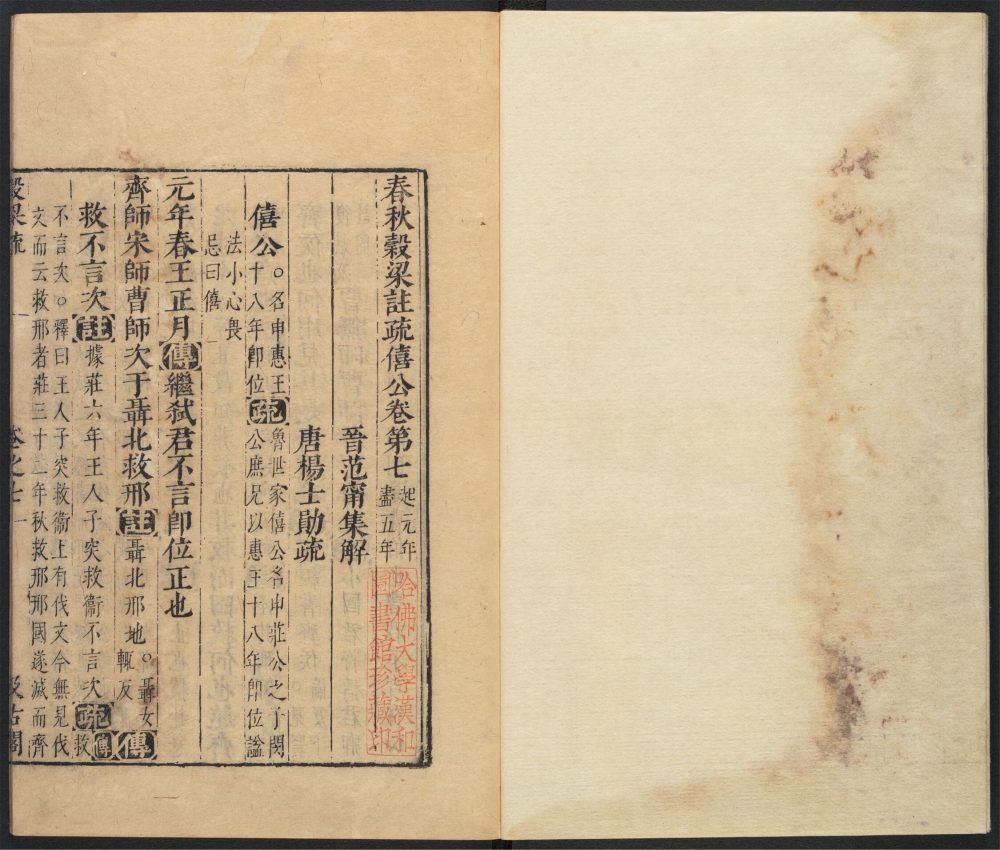 春秋穀梁註疏僖公卷第七 起元年
盡五年
晉范甯集解
唐楊士勛疏
僖公 ○名申惠王
十八年即位 疏 魯世家僖公名申莊公之子閔
公庶兄以惠王十八年即位諡
法小心畏
忌曰僖
元年春王正月 傳 繼弒君不言即位正也
齊師宋師曹師次于聶北救邢 註 聶北邢地○聶女
輒反 傳
救不言次 註 據莊六年王人子突救衞不言次 疏 傳救
不言次○釋曰王人子突救衞上有伐文今無見伐
文而云救邢者莊三十二年秋救邢邢國遂滅而齊
穀梁疏 卷之七 一 汲古閣
哈佛大學漢和
圖書館珍藏印